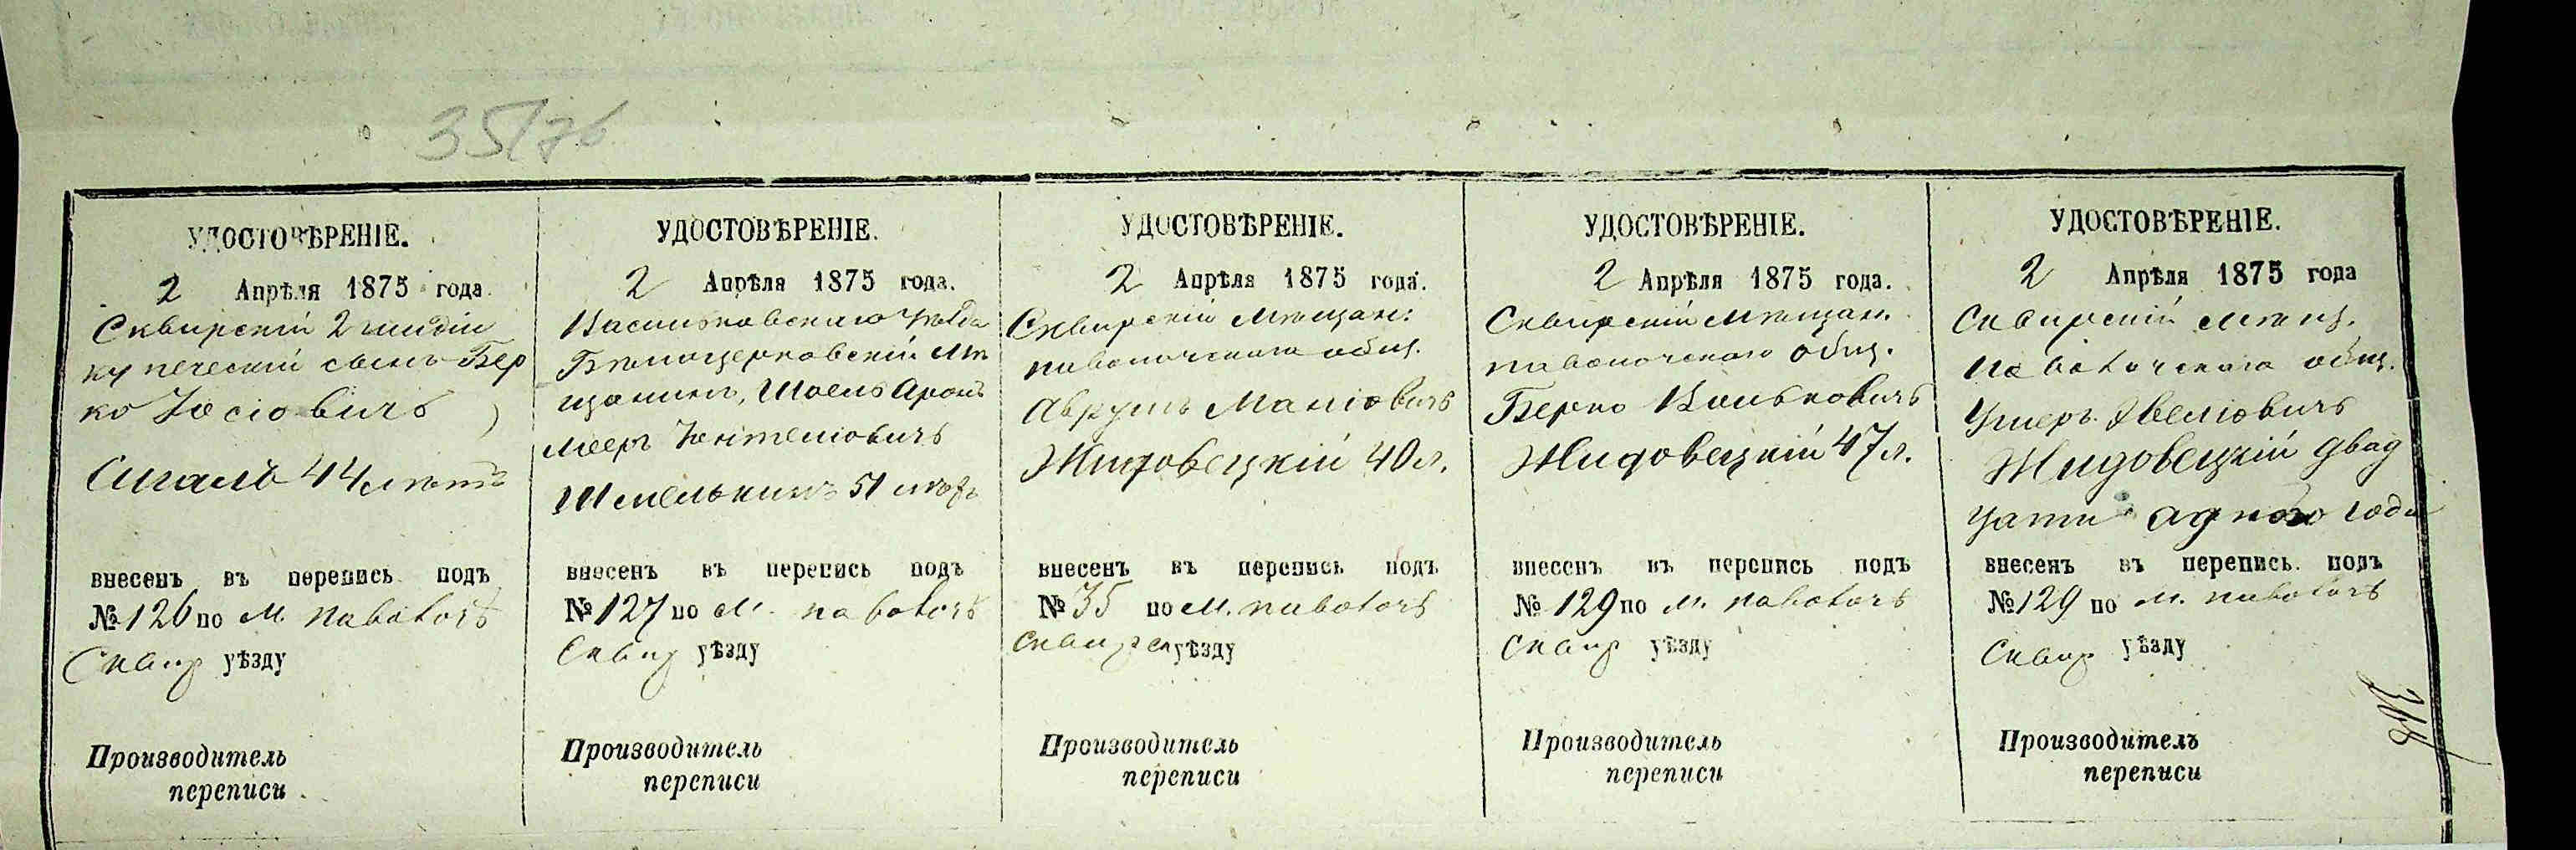 35/76
УДОСТОВѢРЕНІЕ.
2 Апрѣля 1875 года.
Сквирскій 2 гилдіи
купеческій сынъ Бер
ко Іосіовичъ
Сигалъ 44 лѣтъ
внесенъ въ перепись подъ
№ 126 по м. Паволочѣ
Сквир уѣзду
Производитель
переписи
УДОСТОВѢРЕНІЕ.
2 Апрѣля 1875 года.
Васильковскаго уѣзда
Бѣлоцерковскій мѣ
щанинъ, Шоель Аронъ
Мееръ
Шмелькинъ 51 лѣтъ
внесенъ въ перепись подъ
№ 127 по м. Паволочѣ
Сквир уѣзду
Производитель
переписи
УДОСТОВѢРЕНІЕ.
2 Апрѣля 1875 года.
Сквирскій мѣщан:
паволочскаго общ.
Аврумъ Маніовичъ
Жидовецкій 40 л.
внесенъ въ перепись подъ
№ 35 по м. Паволочѣ
Сквирск уѣзду
Производитель
переписи
УДОСТОВѢРЕНІЕ.
2 Апрѣля 1875 года.
Сквирскій мѣщан.
паволочскаго общ.
Берко Вольковичъ
Жидовецкій 47 л.
внесенъ въ перепись подъ
№ 129 по м. Паволочѣ
Сквир уѣзду
Производитель
переписи
УДОСТОВѢРЕНІЕ.
2 Апрѣля 1875 года
Сквирскій мѣщ.
Паволочскаго общ.
Ушеръ Хвеліовичъ
Жидовецкій двад
цати адного года
внесенъ въ перепись подъ
№ 129 по м. Паволочѣ
Сквир уѣзду
Производитель
переписи